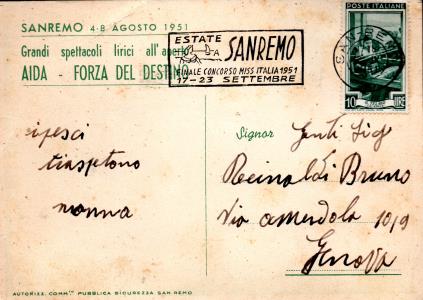 SANREMO 4-8 AGOSTO 1951
Grandi spettacoli lirici all'aperto
AIDA - FORZA DEL DESTINO
ESTATE
SANREMO
FINALE CONCORSO MISS ITALIA 1951
17-23 SETTEMBRE
POSTE ITALIANE
10 LIRE
SANREMO
i pesci
ti aspetono
nonna
Signor Gentil Sig
Reinaldi Bruno
Via amendola 10/9
Genova
AUTORIZZ. COMM.to PUBBLICA SICUREZZA SAN REMO